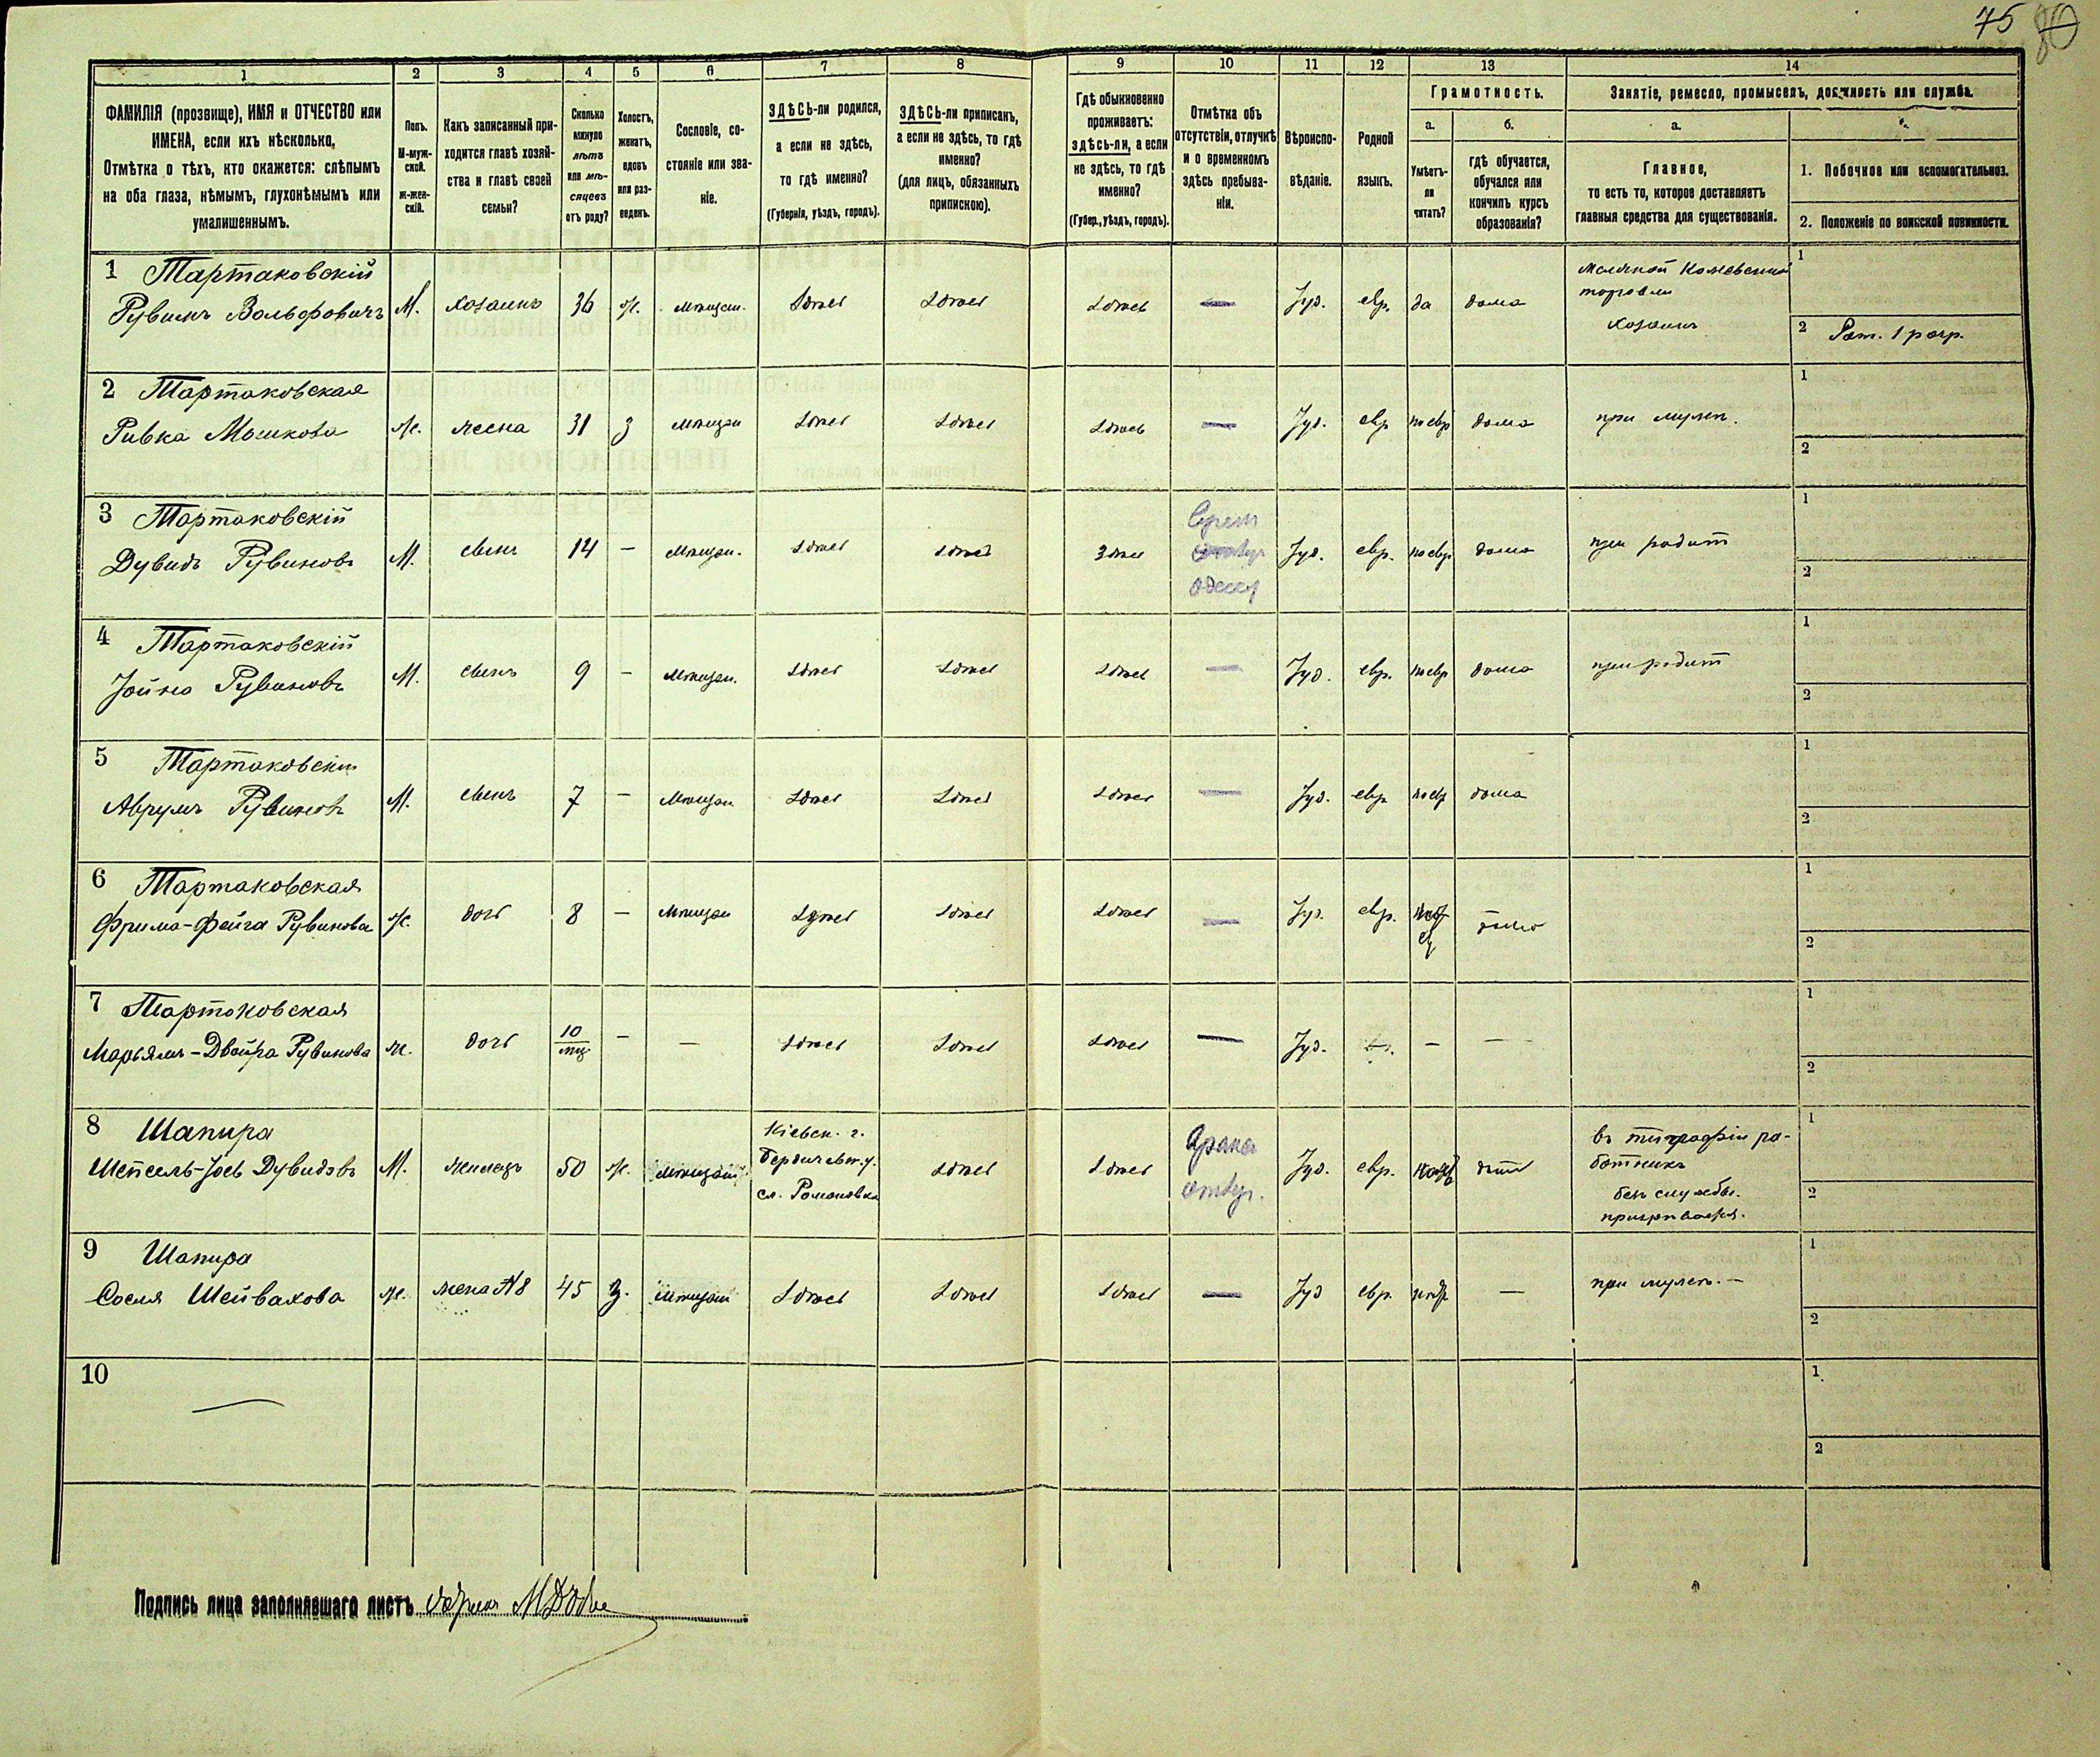 75 80
1 2 3 4 5 6 7 8 9 10 11 12 13 14
ФАМИЛІЯ (прозвище), ИМЯ и ОТЧЕСТВО или
ИМЕНА, если ихъ нѣсколько.
Отмѣтка о тѣхъ, кто окажется: слѣпымъ
на оба глаза, нѣмымъ, глухонѣмымъ или
умалишеннымъ.
Полъ.
М-муж-
ской.
Ж-жен-
скій.
Какъ записанный при-
ходится главѣ хозяй-
ства и главѣ своей
семьи?
Сколько
минуло
лѣтъ
или мѣ-
сяцевъ
отъ роду?
Холостъ,
женатъ,
вдовъ
или раз-
веденъ.
Сословіе, со-
стояніе или зва-
ніе.
ЗДѢСЬ-ли родился,
а если не здѣсь,
то гдѣ именно?
(Губернія, уѣздъ, городъ).
ЗДѢСЬ-ли приписанъ,
а если не здѣсь, то гдѣ
именно?
(для лицъ, обязанныхъ
припискою).
Гдѣ обыкновенно
проживаетъ:
здѣсь-ли, а если
не здѣсь, то гдѣ
именно?
(Губер., уѣздъ, городъ).
Отмѣтка объ
отсутствіи, отлучкѣ
и о временномъ
здѣсь пребыва-
ніи.
Вѣроиспо-
вѣданіе.
Родной
языкъ.
Грамотность.
а.
Умѣетъ-
ли
читать?
б.
гдѣ обучается,
обучался или
кончилъ курсъ
образованія?
Занятіе, ремесло, промыселъ, должность или служба.
а.
Главное,
то есть то, которое доставляетъ
главныя средства для существованія.
1. Побочное или вспомогательное.
2. Положеніе по воинской повинности.
1 Тартаковскій
Рувинъ Вольфовичъ М. хозяинъ 36 ж. мѣщан. здѣсь здѣсь здѣсь — Іуд. евр. да дома
торговли
хозяинъ
1
2 Рат. 1 разр.
2 Тартаковская
Ривка Мошкова ж. жена 31 з мѣщан здѣсь здѣсь здѣсь — Іуд. евр по евр дома при мужѣ.
1
2
3 Тартаковскій
Дувидъ Рувиновъ М. сынъ 14 — мѣщан. здѣсь здѣсь здѣсь Одессу Іуд. евр. по евр дома при родит
1
2
4 Тартаковскій
Іойна Рувиновъ М. сынъ 9 — мѣщан. здѣсь здѣсь здѣсь — Іуд. евр. по евр дома при родит
1
2
5 Тартаковскій
Аврумъ Рувиновъ М. сынъ 7 — мѣщан здѣсь здѣсь здѣсь — Іуд. евр по евр дома
1
2
6 Тартаковская
Фрима-Фейга Рувинова ж. дочь 8 — мѣщан здѣсь здѣсь здѣсь — Іуд. евр. дома
1
2
7 Тартаковская
Марьямъ-Двойра Рувинова ж. дочь 10 мц — — здѣсь здѣсь здѣсь — Іуд. — —
1
2
8 Шапира
Шепсель-Іось Дувидовъ М. жилецъ 50 ж. мѣщан
Кіевск. г.
Бердичевск. у.
сл. Романовка
здѣсь здѣсь Іуд. евр.
въ типографіи ра-
ботникъ
безъ службы.
1
2
9 Шапира
Сосля Шейвахова ж. жена №8 45 з. мѣщан здѣсь здѣсь здѣсь — Іуд евр — при мужѣ. —
1
2
10 —
1
2
Подпись лица заполнявшаго листъ